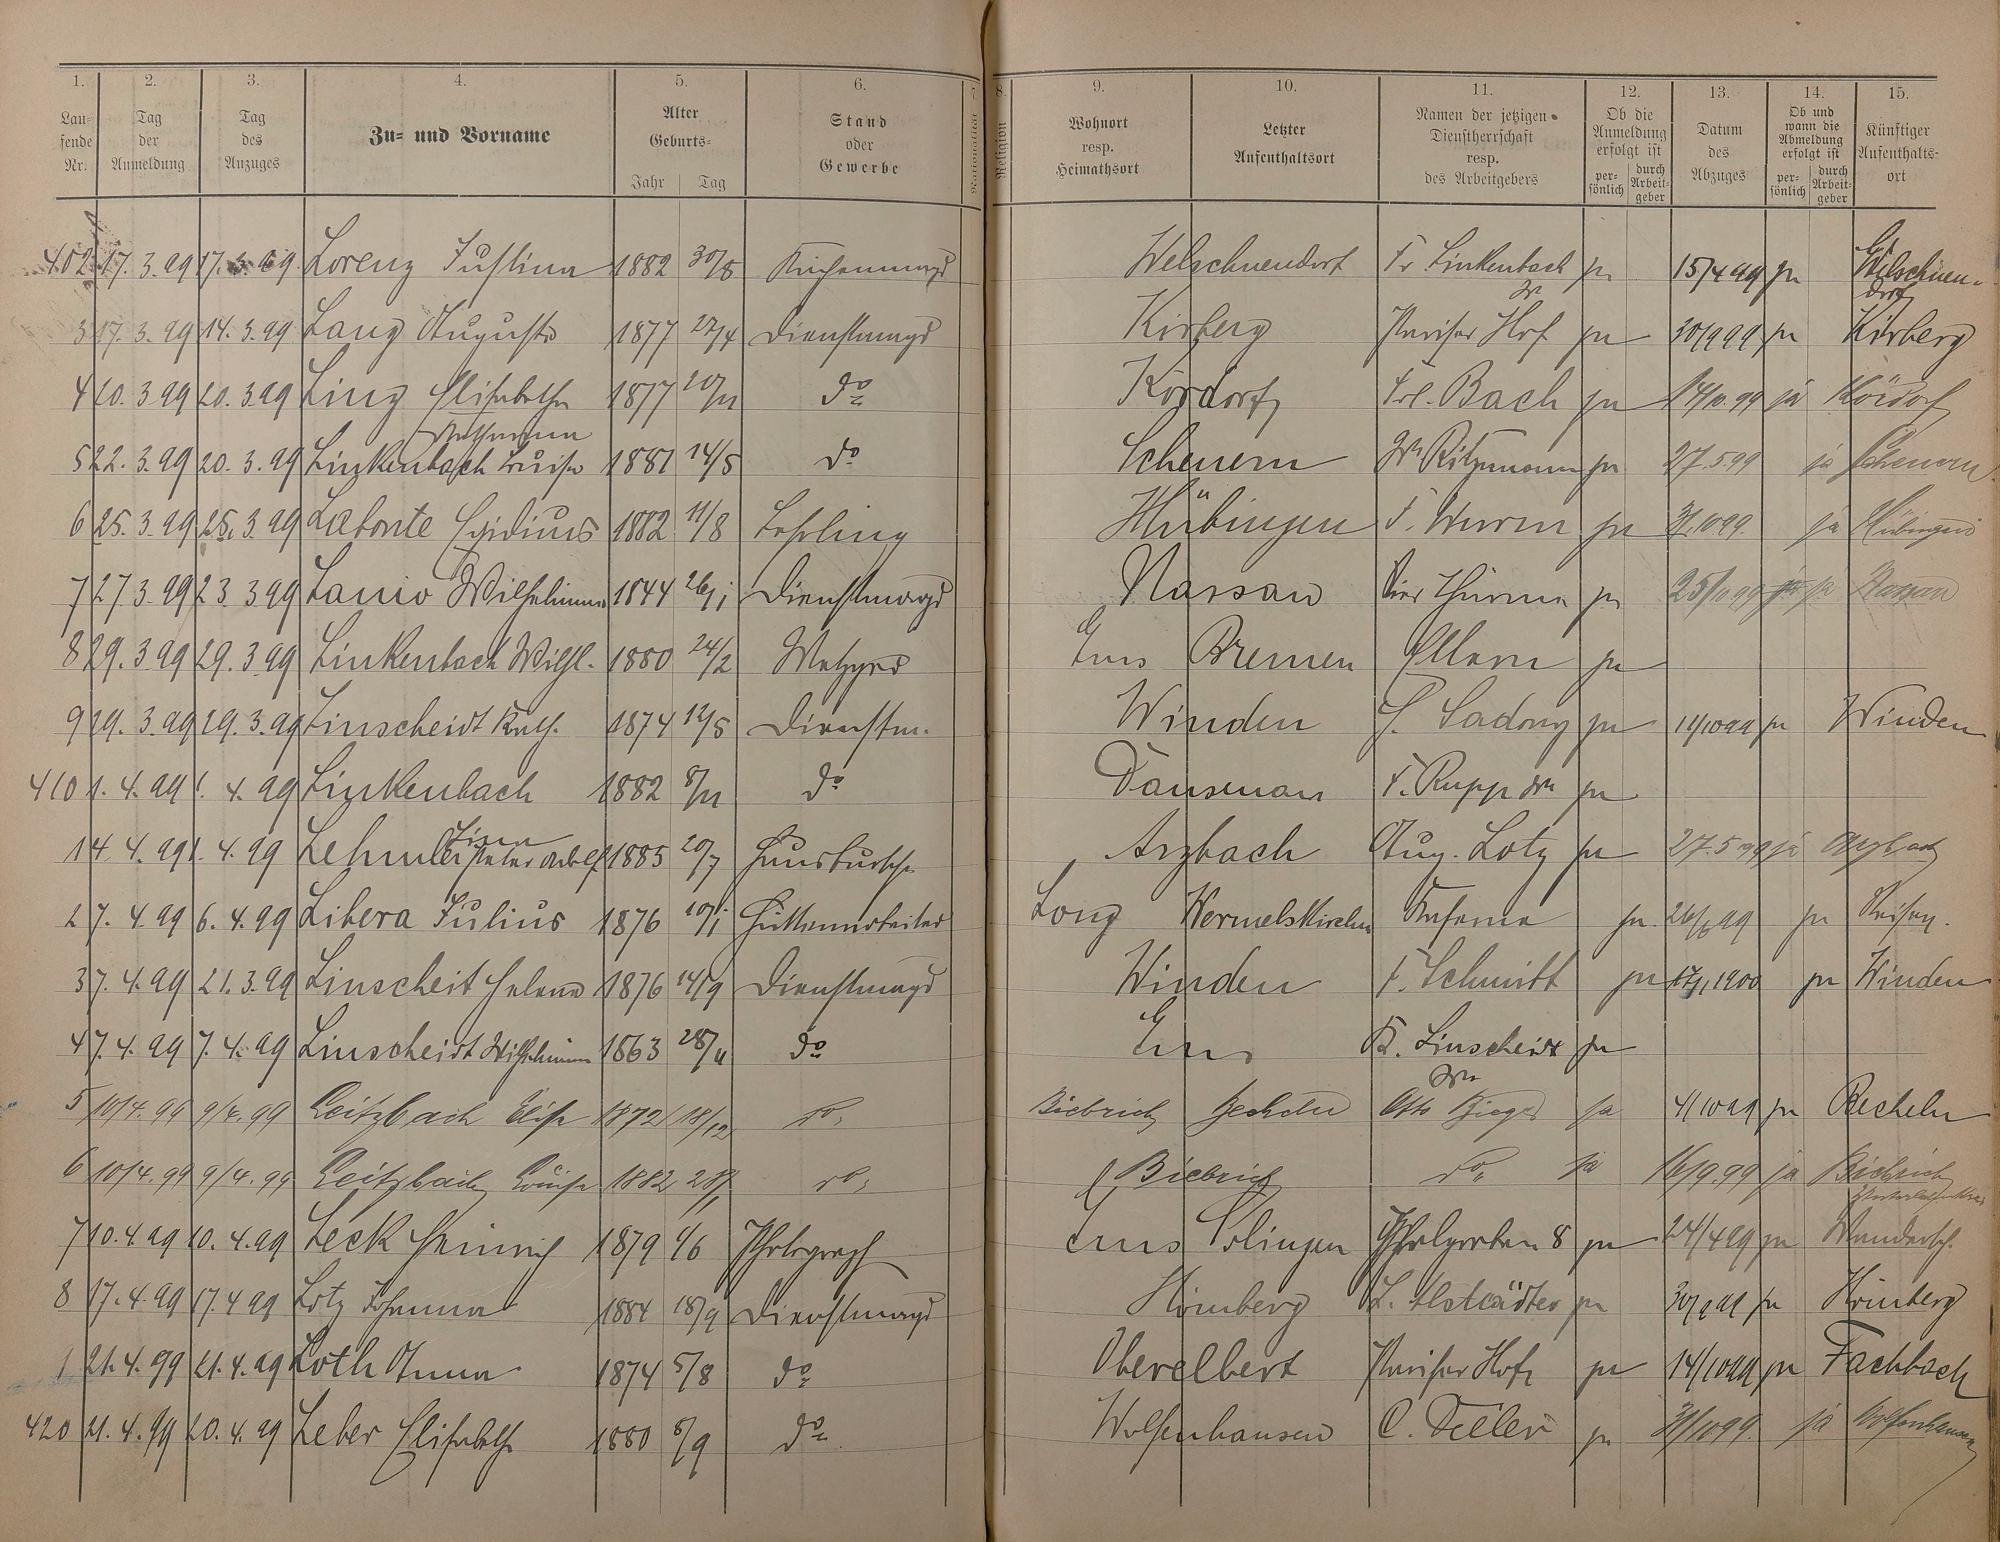 1. 2. 3. 4. 5. 6. 7 8. 9. 10. 11. 12. 13. 14. 15.
Lau-
fende
Nr.
Tag
der
Anmeldung
Tag
des
Anzuges
Zu- und Vorname
Alter
Geburts-
Jahr Tag
Stand
oder
Gewerbe
Nationalität
Religion
Wohnort
resp.
Heimathsort
Letzter
Aufenthaltsort
Namen der jetzigen
Dienstherrschaft
resp.
des Arbeitgebers
Ob die
Anmeldung
erfolgt ist
per-
sönlich
durch
Arbeit-
geber
Datum
des
Abzuges
Ob und
wann die
Abmeldung
erfolgt ist
per-
sönlich
durch
Arbeit-
geber
Künftiger
Aufenthalts-
ort
402 17. 3. 99 17. 3. 99 Lorenz Justina 1882 30/8 Küchenmagd Welschneudorf Fr Linkenbach ja 15/4 99 ja Welschneu-
dorf
3 17. 3. 99 14. 3. 99 Lang Auguste 1877 27/4 Dienstmagd Kirberg Pariser Hof ja 30/9 99 ja Kirberg
4 20. 3 99 20. 3. 99 Linz Elisabethe 1877 20/11 do Kördorf Frl. Bach ja 14/10. 99 ja Kördorf
5 22. 3. 99 20. 3. 99 Linkenbach Luise 1881 14/5 do Scheuern Wn Ritzmann ja 27. 5. 99 ja Scheuern
6 25. 3. 99 25. 3. 99 Labonte Egidius 1882 11/8 Lehrling Hübingen F. Wurm ja 31. 10 99. ja Hübingen
7 27. 3. 99 23. 3 99 Lanio Wilhelmine 1844 26/1 Dienstmagd Nassau Vier Thürme ja 25/11 99 ja ja Nassau
8 29. 3 99 29. 3. 99 Linkenbach Wilh. 1880 24/2 Metzger Ems Bremen Eltern ja
9 29. 3. 99 29. 3. 99 Linscheidt Kath. 1874 12/5 Dienstm. Winden H. Sadony ja 11/10 99 ja Winden
410 1. 4. 99 1. 4. 99 Linkenbach 1882 8/11 do Dausenau F. Rupp Wn ja
Lina
1 4. 4. 99 1. 4. 99 Lehmler Peter Adolf 1885 20/7 Hausbursche Arzbach Aug. Lotz ja 27. 5 99 ja Arzbach
2 7. 4. 99 6. 4. 99 Libera Julius 1876 10/1 Hüttenarbeiter Wermelskirchen Kaserne ja. 26/6 99 ja Reisen.
3 7. 4. 99 21. 3. 99 Linscheit Helene 1876 14/9 Dienstmagd Winden F. Schmitt ja 17/1 1900 ja Winden
4 7. 4. 99 7. 4. 99 Linscheidt Wilhelmine 1863 28/11 do Ems K. Linscheidt ja
Wn
5 10/4. 99 9/4. 99 Leitzbach Elise 1872 18/12 do, Biebrich Becheln Otto ja 4/10 99 ja Becheln
6 10/4. 99 9/4. 99 Leitzbach Louise 1882 28/1 do, Biebrich do, ja 16/9. 99 ja Biebrich
7 10. 4. 99 10. 4. 99 Leck Heinrich 1879 1/6 Photograph Ems Solingen 8 ja 24/4 99 ja Wandersch.
8 17. 4. 99 17. 4 99 Lotz Johanna 1884 18/9 Dienstmagd Hömberg L. Altstädter ja 30/9 99 ja Hömberg
9 21. 4. 99 21. 4. 99 Loth Anna 1874 5/8 do Oberelbert Pariser Hof ja 14/10 99 ja Fachbach
420 21. 4. 99 20. 4. 99 Leber Elisabethe 1880 8/9 do Wolfenhausen C. Feller ja 31/10 99. ja Wolfenhausen